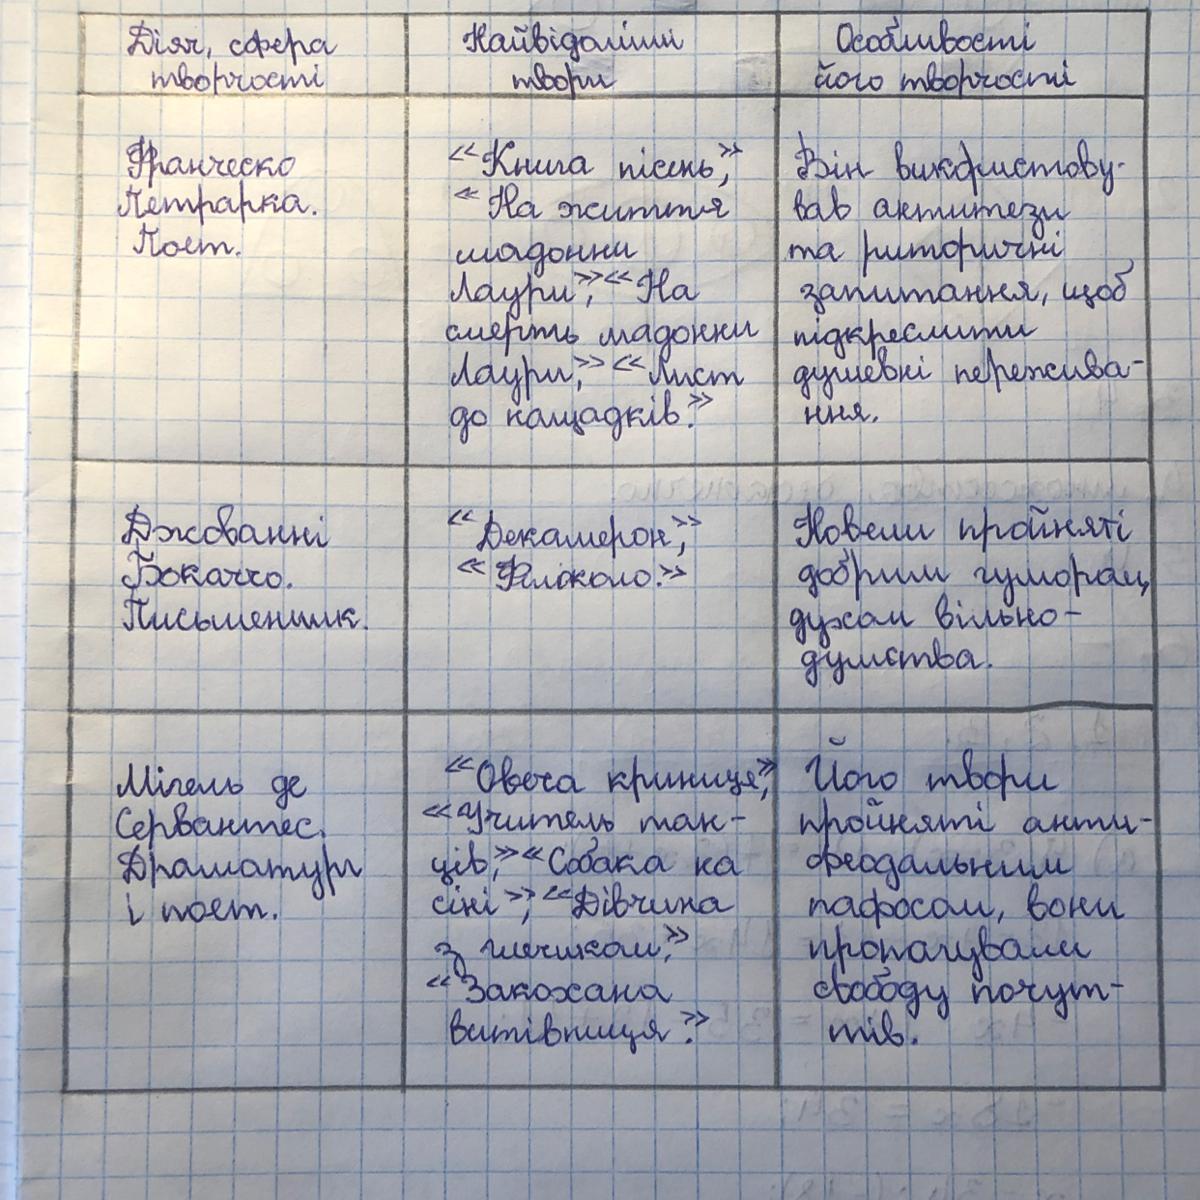 Діяч, сфера
творчості
Найвідоміші
твори
Особливості
його творчості
Франческо
Петрарка.
Поет.
«Книга пісень»,
«На життя
мадонни
Лаури», «На
смерть мадонни
Лаури», «Лист
до нащадків».
Він використову-
вав антитези
та риторичні
запитання, щоб
підкреслити
душевні пережива-
ння.
Джованні
Бокаччо.
Письменник.
«Декамерон»,
«Філоколо.»
Новели пройняті
добрим гумором,
духом вільно-
думства.
Мігель де
Сервантес.
Драматург
і поет.
«Овеча криниця»,
«Учитель тан-
ців», «Собака на
сіні», «Дівчина
з глечиком»,
«Закохана
витівниця».
Його твори
пройняті анти-
феодальним
пафосом, вони
пропагували
свободу почут-
тів.